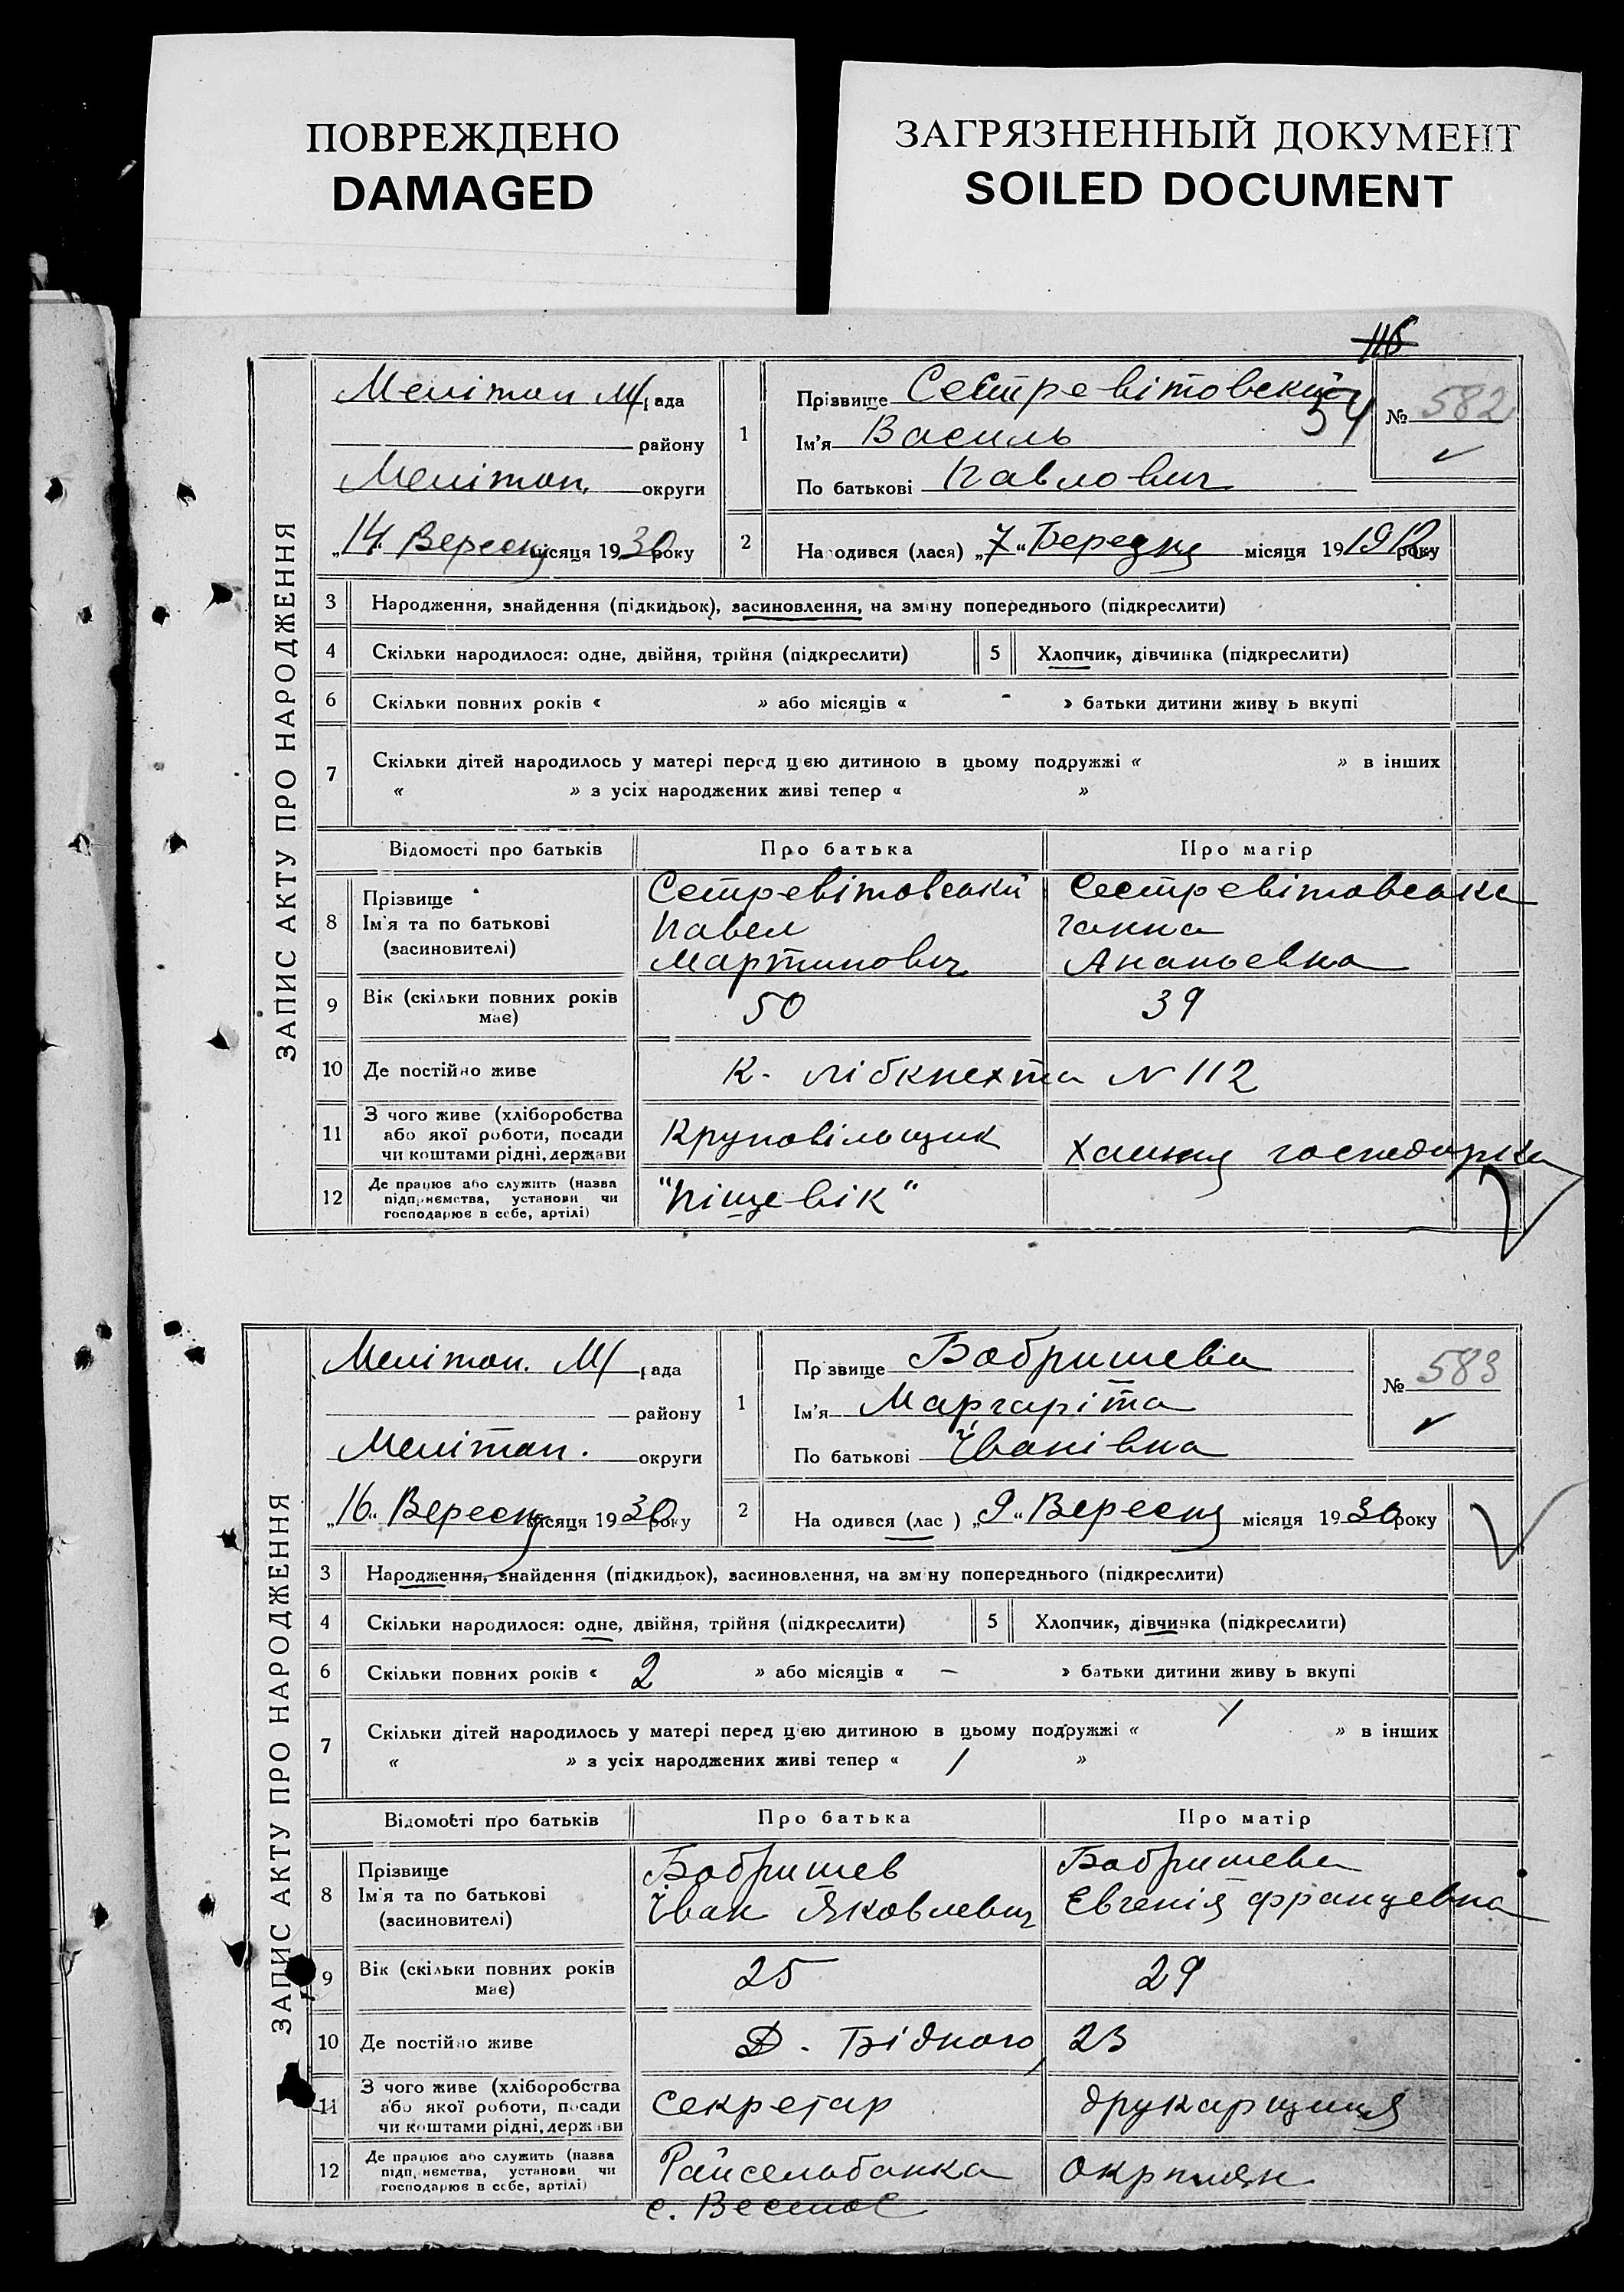 ПОВРЕЖДЕНО
DAMAGED
ЗАГРЯЗНЕННЫЙ ДОКУМЕНТ
SOILED DOCUMENT
116
54
ЗАПИС АКТУ ПРО НАРОДЖЕННЯ
Мелітоп М/рада
району
Мелітоп. округи
„14“ Вересня місяця 1930 року
1
Прізвище Сестревітовский
Ім'я Василь
По батькові Павлович
№ 582
2
Народився (лася) „7“ Березня місяця 19 1912 року
3 Народження, знайдення (підкидьок), засиновлення, на зміну попереднього (підкреслити)
4 Скільки народилося: одне, двійня, трійня (підкреслити)
5 Хлопчик, дівчинка (підкреслити)
6 Скільки повних років « » або місяців « - » батьки дитини живуть вкупі
7 Скільки дітей народилось у матері перед цією дитиною в цьому подружжі « » в інших
« » з усіх народжених живі тепер « »
Відомості про батьків Про батька Про матір
8 Прізвище
Ім'я та по батькові
(засиновителі)
Сетревітовський
Павел
Мартинович
Сестревітовська
Ганна
Ананьевна
9 Вік (скільки повних років має) 50 39
10 Де постійно живе К. Лібкнехта N 112
11 З чого живе (хліборобства
або якої роботи, посади
чи коштами рідні, держави
Круповільщик
Хатня господарка
12 Де працює або служить (назва
підприємства, установи чи
господарює в себе, артілі)
"Піщевік"
ЗАПИС АКТУ ПРО НАРОДЖЕННЯ
Мелітоп. М/рада
району
Мелітоп. округи
„16“ Вересня місяця 1930 року
1
Прізвище Бобришева
Ім'я Маргаріта
По батькові Іванівна
№ 583
2
Народився (лас ) „9“ Вересня місяця 1930 року
3 Народження, знайдення (підкидьок), засиновлення, на зміну попереднього (підкреслити)
4 Скільки народилося: одне, двійня, трійня (підкреслити)
5 Хлопчик, дівчинка (підкреслити)
6 Скільки повних років « 2 » або місяців « — » батьки дитини живуть вкупі
7 Скільки дітей народилось у матері перед цією дитиною в цьому подружжі « 1 » в інших
« » з усіх народжених живі тепер « 1 »
Відомості про батьків Про батька Про матір
8 Прізвище
Ім'я та по батькові
(засиновителі)
Бобришев
Іван Яковлевич
Бобришева
Евгенія Францевна
9 Вік (скільки повних років має) 25 29
10 Де постійно живе Д. Бідного, 23
11 З чого живе (хліборобства
або якої роботи, посади
чи коштами рідні, держави
секретар
друкарщиця
12 Де працює або служить (назва
підприємства, установи чи
господарює в себе, артілі)
Райсельбанка
с. Веселое